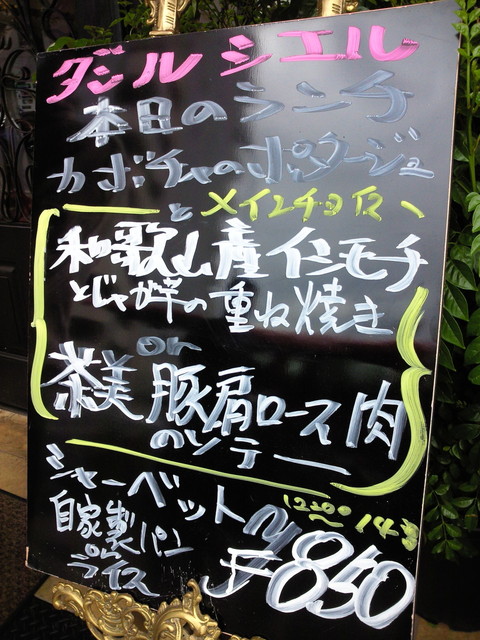 ダンルシエル
本日のランチ
カボチャのポタージュ
と メイン
和歌山産イシモチ
とじゃが芋の重ね焼き
or
茶美豚肩ロース肉
のソテー
シャーベット
12:00〜14:
自家製パン
or
ライス
¥850